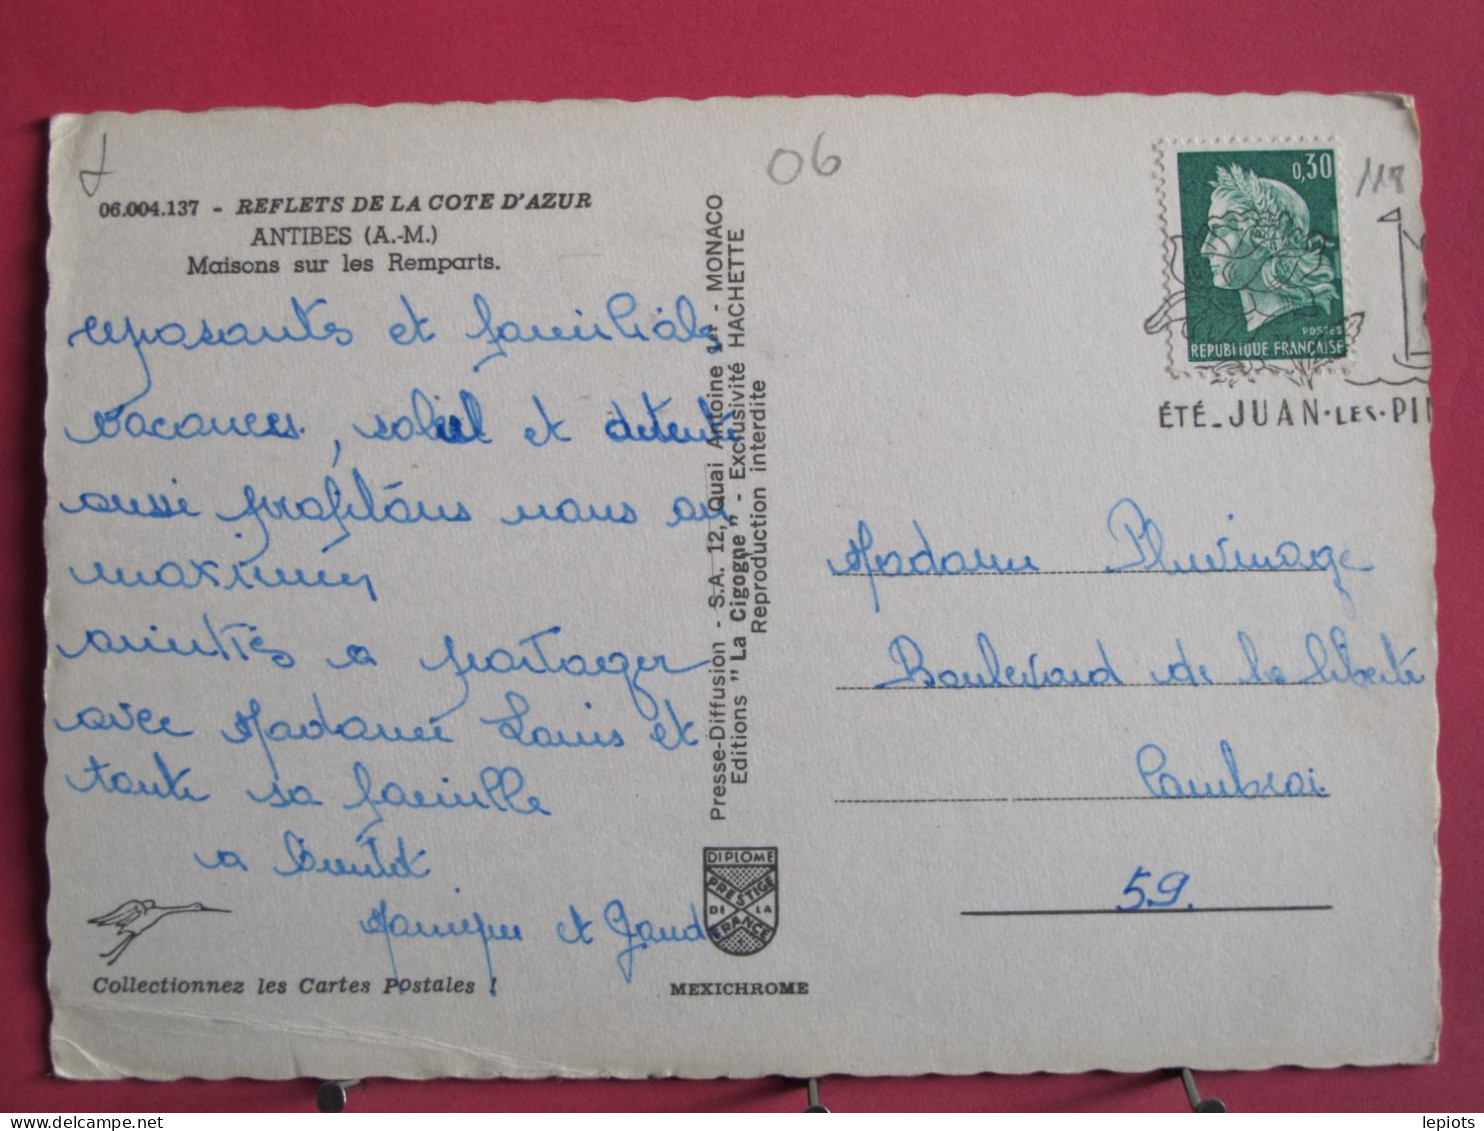 06
118
06.004.137 - REFLETS DE LA COTE D'AZUR
ANTIBES (A.-M.)
Maisons sur les Remparts.
reposantes et familiales
vacances, soleil et détente
aussi profitons nous au
maximum
amitiés a partager
avec Madame Louis et
toute sa famille
a bientôt
et
Collectionnez les Cartes Postales !
Presse-Diffusion - S.A. 12, Quai Antoine 1er - MONACO
Editions "La Cigogne" - Exclusivité HACHETTE
Reproduction interdite
DIPLOME
PRESTIGE
DE LA
FRANCE
MEXICHROME
0,30
POSTES
REPUBLIQUE FRANÇAISE
ÉTÉ_JUAN·LES·PIN
Madame Pluvinage
Boulevard de la liberté
Cambrai
59.
delcampe.net
lepiots